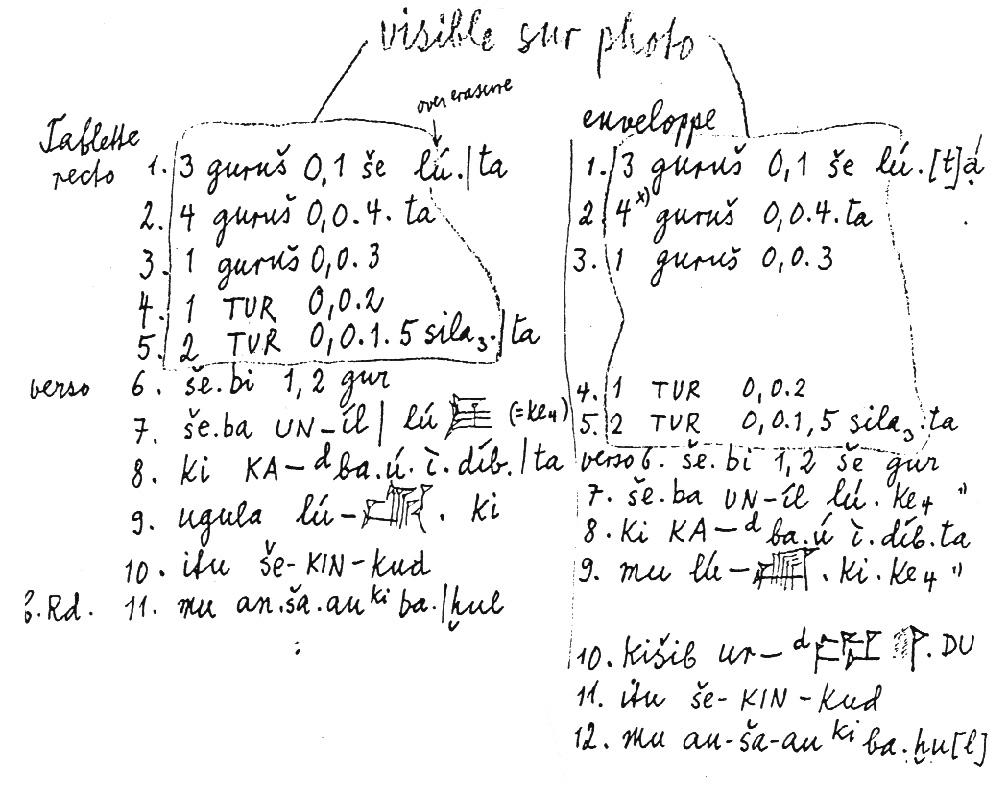 visible sur photo
over erasure
Tablette
recto
1. 3 guruš 0,1 še lú.|ta
2. 4 guruš 0,0.4.ta
3. 1 guruš 0,0.3
4. 1 TUR 0,0.2
5. 2 TUR 0,0.1.5 sila₃.|ta
verso 6. še.bi 1,2 gur
7. še.ba UN-íl | lú (=ke₄)
8. ki KA-ᵈba.ú.ì.díb.|ta
9. ugula lú- . ki
10. itu še-KIN-kud
Rd. 11. mu an.ša.anᵏⁱ ba.|ḫul
enveloppe
1. 3 guruš 0,1 še lú.[t]a
2. 4ˣ⁾ guruš 0,0.4.ta
3. 1 guruš 0,0.3
4. 1 TUR 0,0.2
5. 2 TUR 0,0.1,5 sila₃.ta
verso 6. še.bi 1,2 še gur
7. še.ba UN-íl lú.ke₄ ⁿ⁾
8. ki KA-ᵈba.ú ì.díb.ta
9. mu lú- .ki.ke₄ ⁿ⁾
10. kišib ur-ᵈ .DU
11. itu še-KIN-kud
12. mu an-ša-anᵏⁱ ba.ḫu[l]